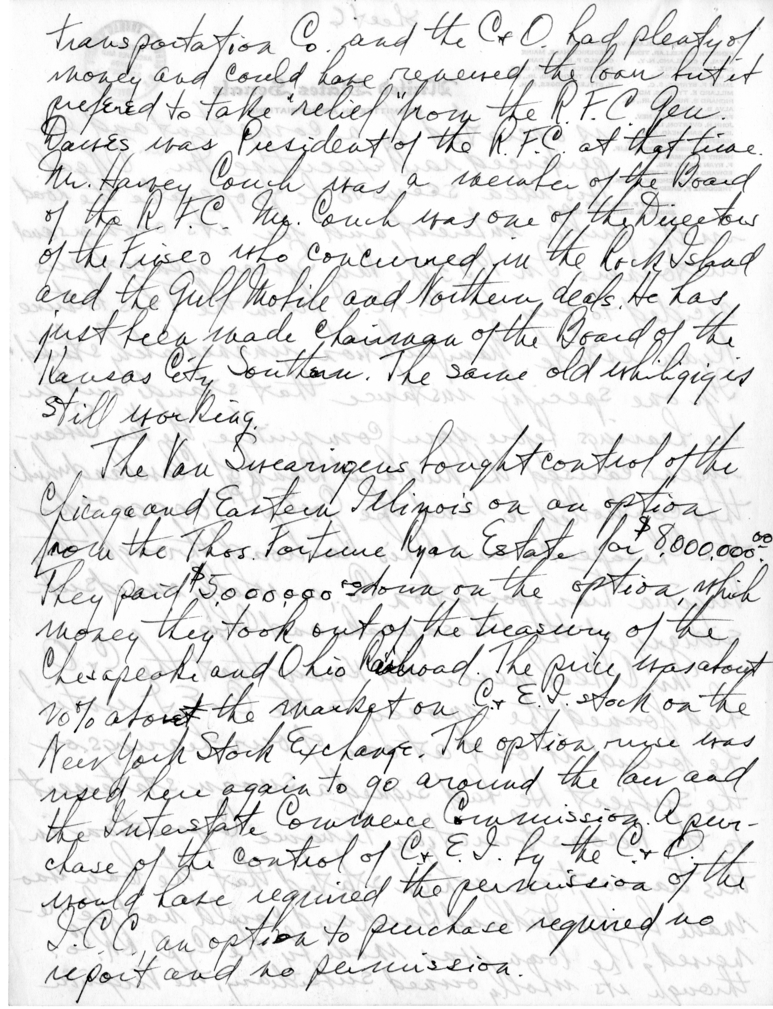 transportation Co. and the C & O. had plenty of
money and could have renewed the loan but it
prefered to take "relief" from the R.F.C. Gen.
Dawes was President of the R.F.C. at that time.
Mr. Harvey Couch was a member of the Board
of the R.F.C. Mr. Couch was one of the Directors
of the Frisco who concurred in the Rock Island
and the Gulf Mobile and Northern deals. He has
just been made Chairman of the Board of the
Kansas City Southern. The same old whiligig is
still working.
The Van Swearingens bought control of the
Chicago and Eastern Illinois on an option
from the Thos. Fortune Ryan Estate for $8,000,000.00
They paid $5,000,000.00 down on the option, which
money they took out of the treasury of the
Chesapeake and Ohio Railroad. The price was about
70% above the market on C & E.I. stock on the
New York Stock Exchange. The option ruse was
used here again to go around the law and
the Interstate Commerce Commission. A pur-
chase of the control of C & E.I. by the C & O.
would have required the permission of the
I.C.C. an option to purchase required no
report and no permission.